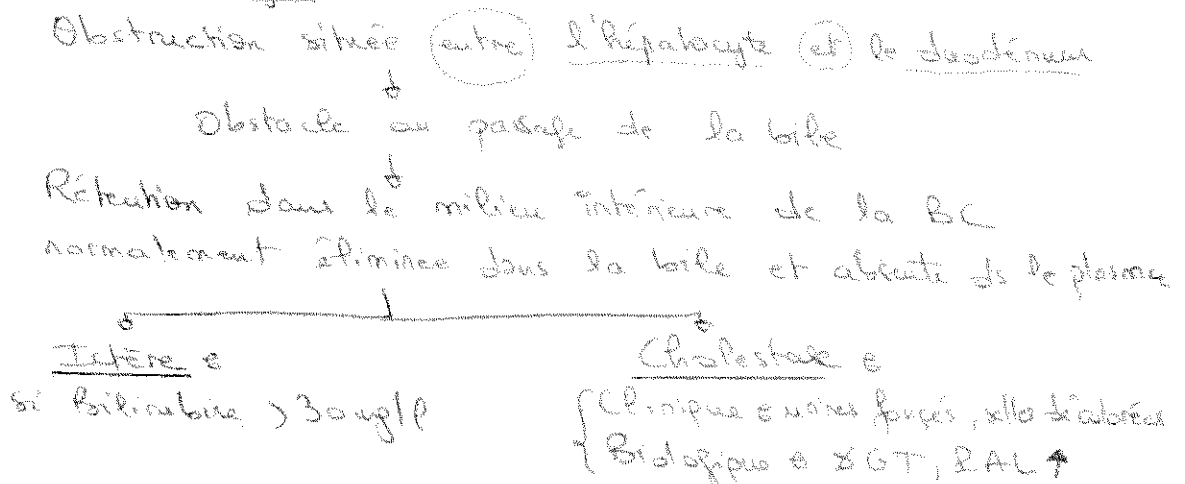 Obstruction située entre l'hépatocyte et le duodénum
Obstacle au passage de la bile
Rétention dans le milieu intérieure de la BC
normalement éliminée dans la bile et absente ds le plasma
Ictère :
si Bilirubine > 30 mg/l
Cholestase :
Clinique : urines foncés, selles décolorées
Biologique : γGT, PAL ↑